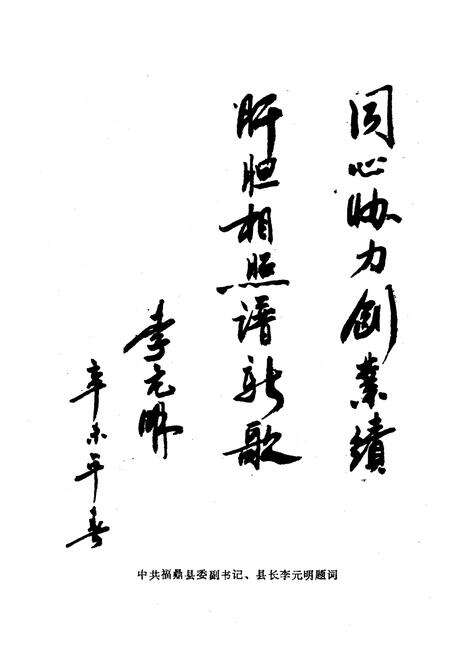 同心协力创業績
肝胆相照谱新歌
李元明
辛未年春
中共福鼎县委副书记、县长李元明题词